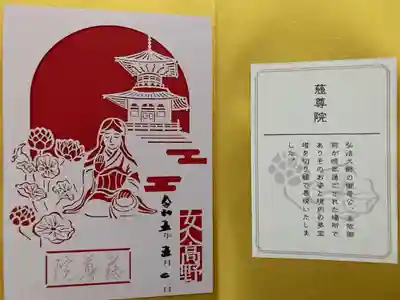 女人高野
令和五年五月
慈尊院
慈尊院
弘法大師の御母公・玉依御
前が晩年過ごされた場所で
ありそのお姿と境内の多宝
塔を切り絵で表現いたしま
した。